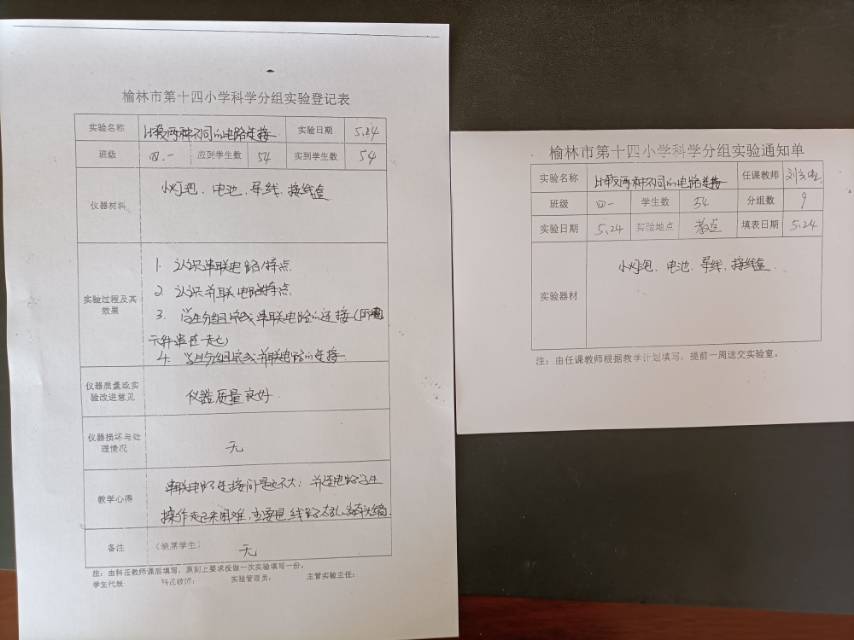 榆林市第十四小学科学分组实验登记表
实验名称 比较两种不同的电路连接 实验日期 5.24
班级 四.一 应到学生数 54 实到学生数 54
仪器材料 小灯泡、电池、导线、接线盒
实验过程及其效果
1. 认识串联电路特点
2. 认识并联电路特点
3. 学生分组完成串联电路的连接(所有
元件串在一起)
4. 学生分组完成并联电路的连接.
仪器质量或实验改进意见 仪器质量良好.
仪器损坏与处理情况 无
教学心得
串联电路连接问题不大;并连电路学生
操作起来困难,主要是线路太乱,
备注 (缺席学生) 无
注:由科任教师课后填写,原则上要求每做一次实验填写一份。
学生代表 科任教师: 实验管理员: 主管实验主任:
榆林市第十四小学科学分组实验通知单
实验名称 比较两种不同的电路连接 任课教师 刘
班级 四一 学生数 54 分组数 9
实验日期 5.24 实验地点 教室 填表日期 5.24
实验器材 小灯泡、电池、导线、接线盒
注:由任课教师根据教学计划填写,提前一周送交实验室。